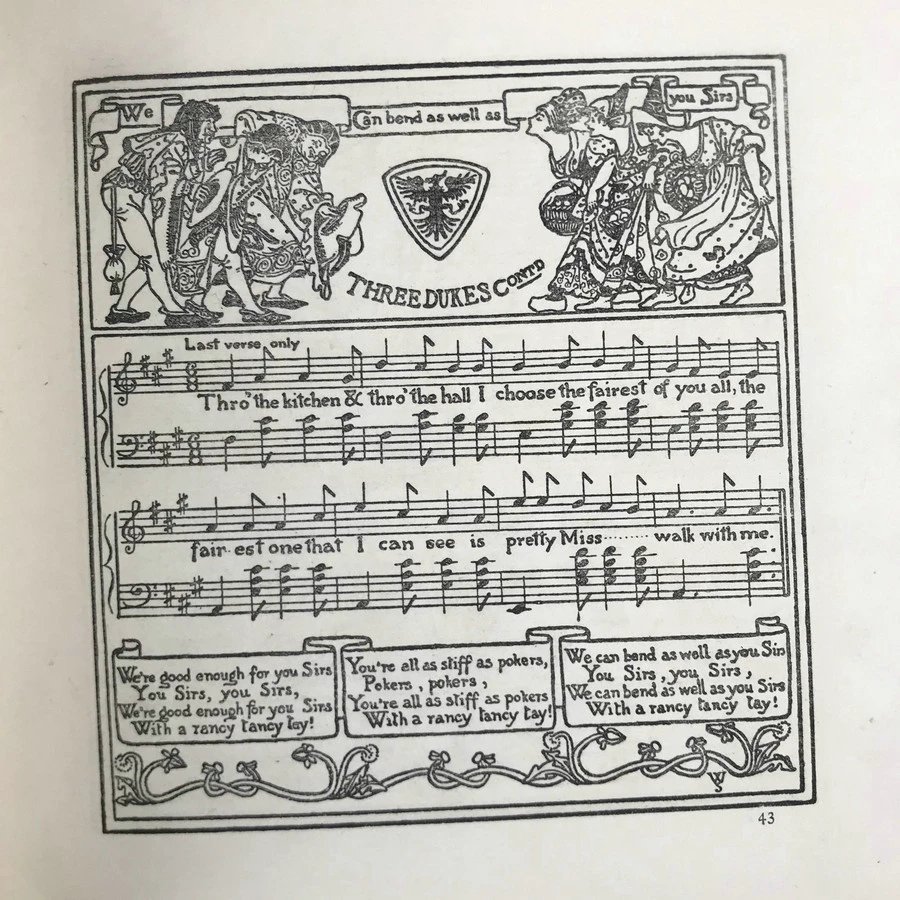 We
Can bend as well as
you Sirs
THREE DUKES CONTD
Last verse only
Thro' the kitchen & thro' the hall I choose the fairest of you all, the
fair-est one that I can see is pretty Miss ........ walk with me.
We're good enough for you Sirs
You Sirs, you Sirs,
We're good enough for you Sirs
With a rancy tancy tay!
You're all as stiff as pokers,
Pokers, pokers,
You're all as stiff as pokers
With a rancy tancy tay!
We can bend as well as you Sirs
You Sirs, you Sirs,
We can bend as well as you Sirs
With a rancy tancy tay!
43